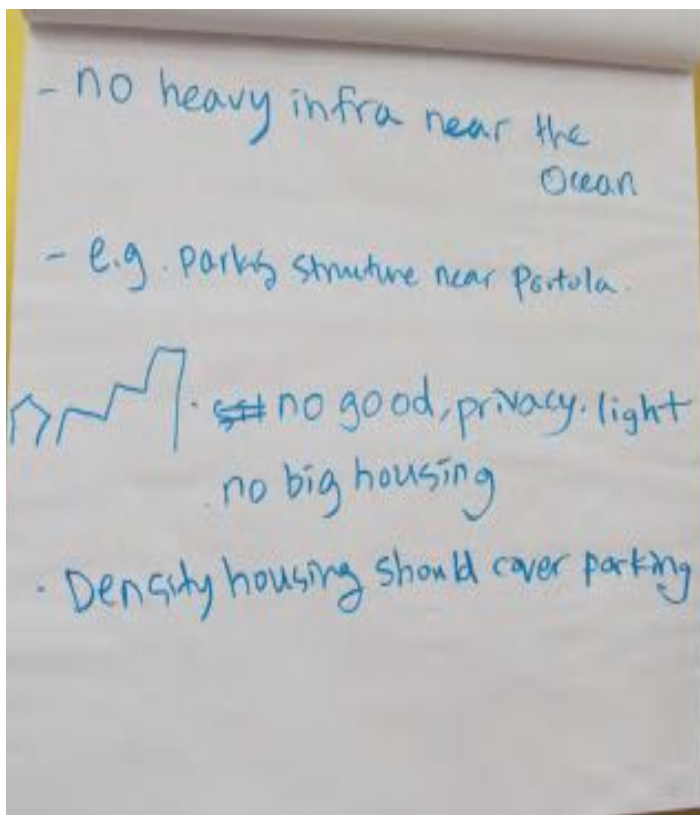 - no heavy infra near the
Ocean
- e.g. parking structure near Portola.
. no good, privacy. light
. no big housing
. Density housing should cover parking